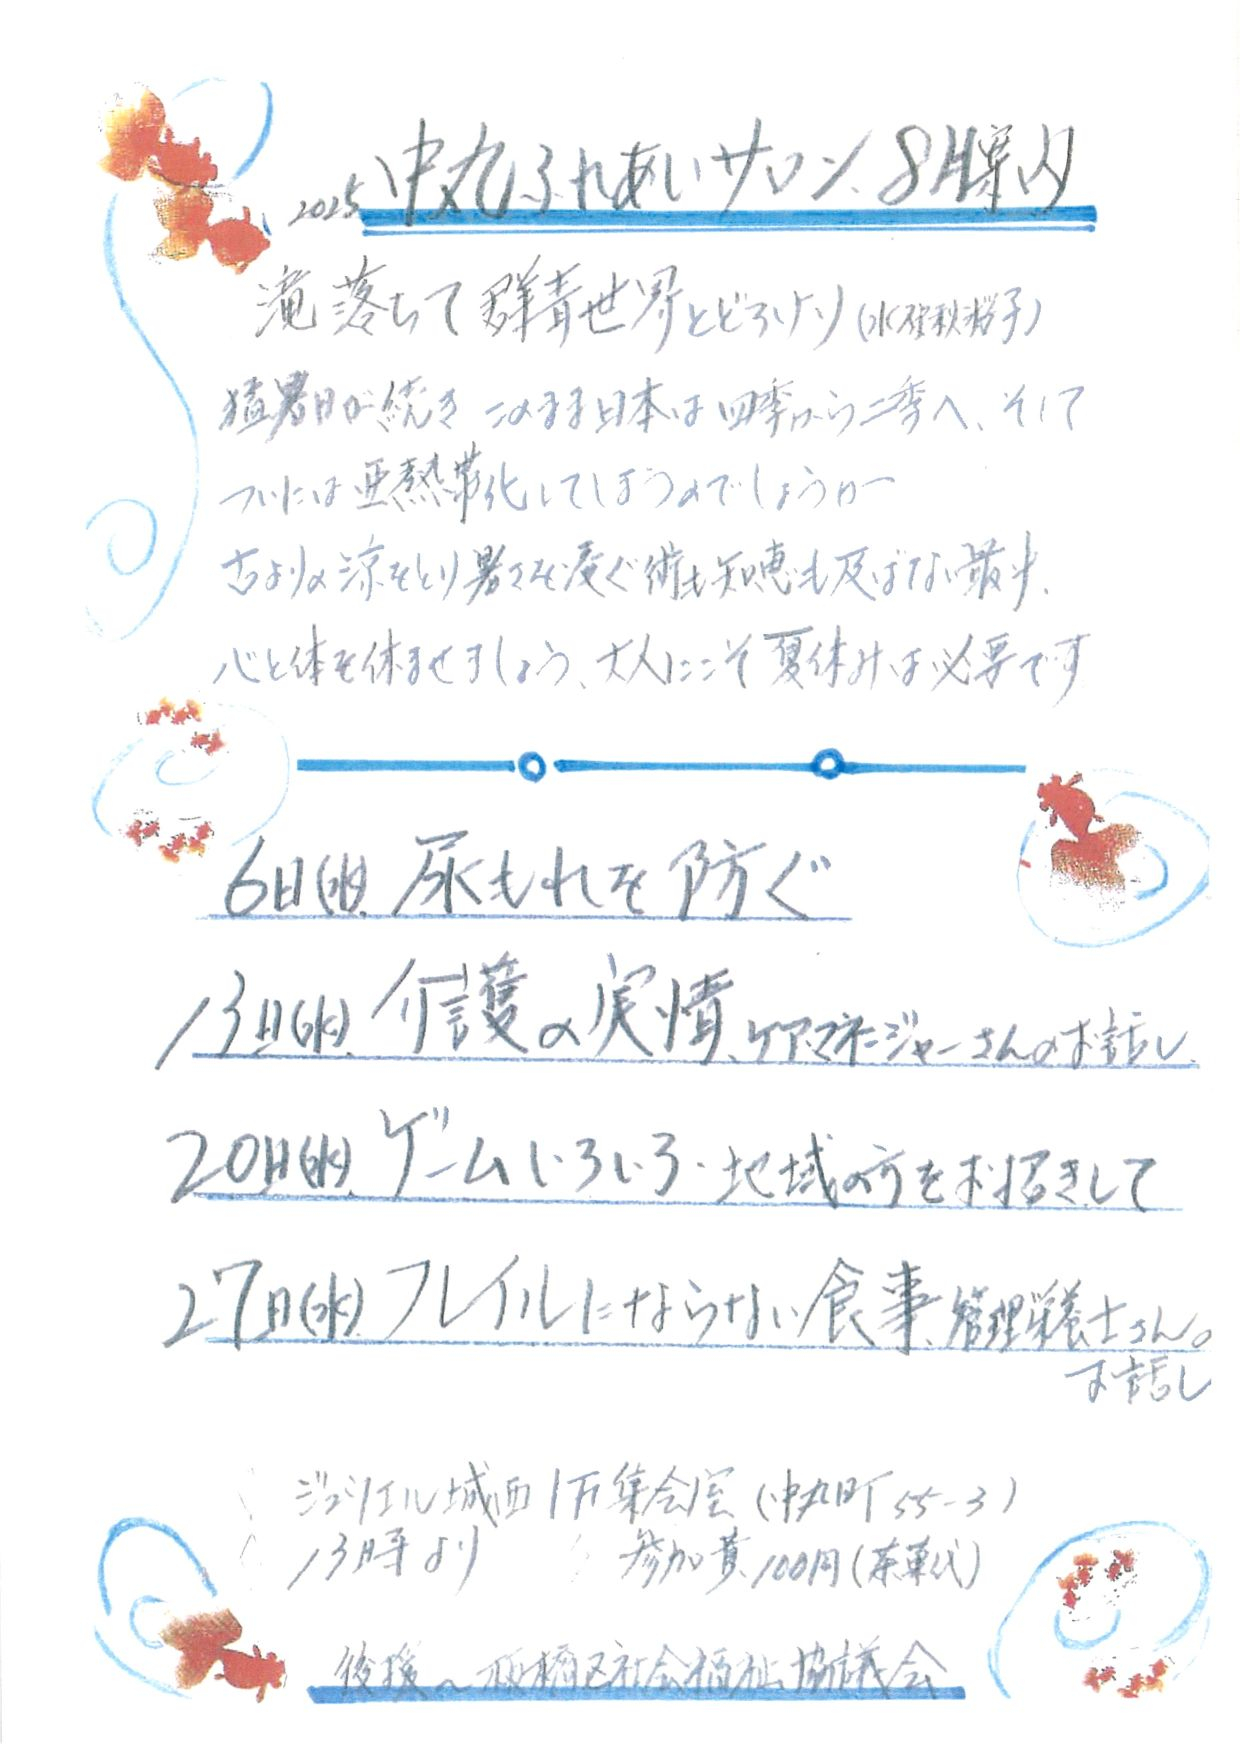 2025 中丸ふれあいサロン 8月案内
滝落ちて群青世界とどろけり(水原秋桜子)
猛暑日が続き このまま日本は四季から二季へ、そして
ついには亜熱帯化してしまうのでしょうか
古よりの涼をとり暑さを凌ぐ術も知恵も及ばない最中、
心と体を休ませましょう、大人にこそ夏休みは必要です
6日(水) 尿もれを防ぐ
13日(水) 介護の実情、ケアマネージャーさんのお話し
20日(水) ゲームいろいろ・地域の方をお招きして
27日(水) フレイルにならない食事、管理栄養士さんの
お話し
城西 1F集会室(中丸町55-3)
13時より 参加費100円(茶菓代)
後援～板橋区社会福祉協議会